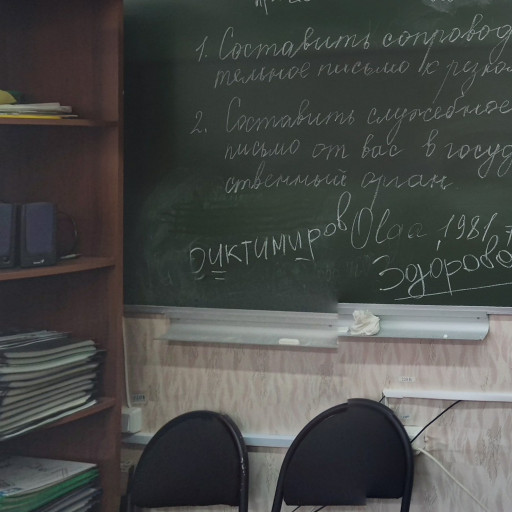 1. Составить сопровод
тельное письмо к резюм
2. Составить служебное
письмо от вас в госуд
ственный орган
фиктимиров Olga 1981
Здорово